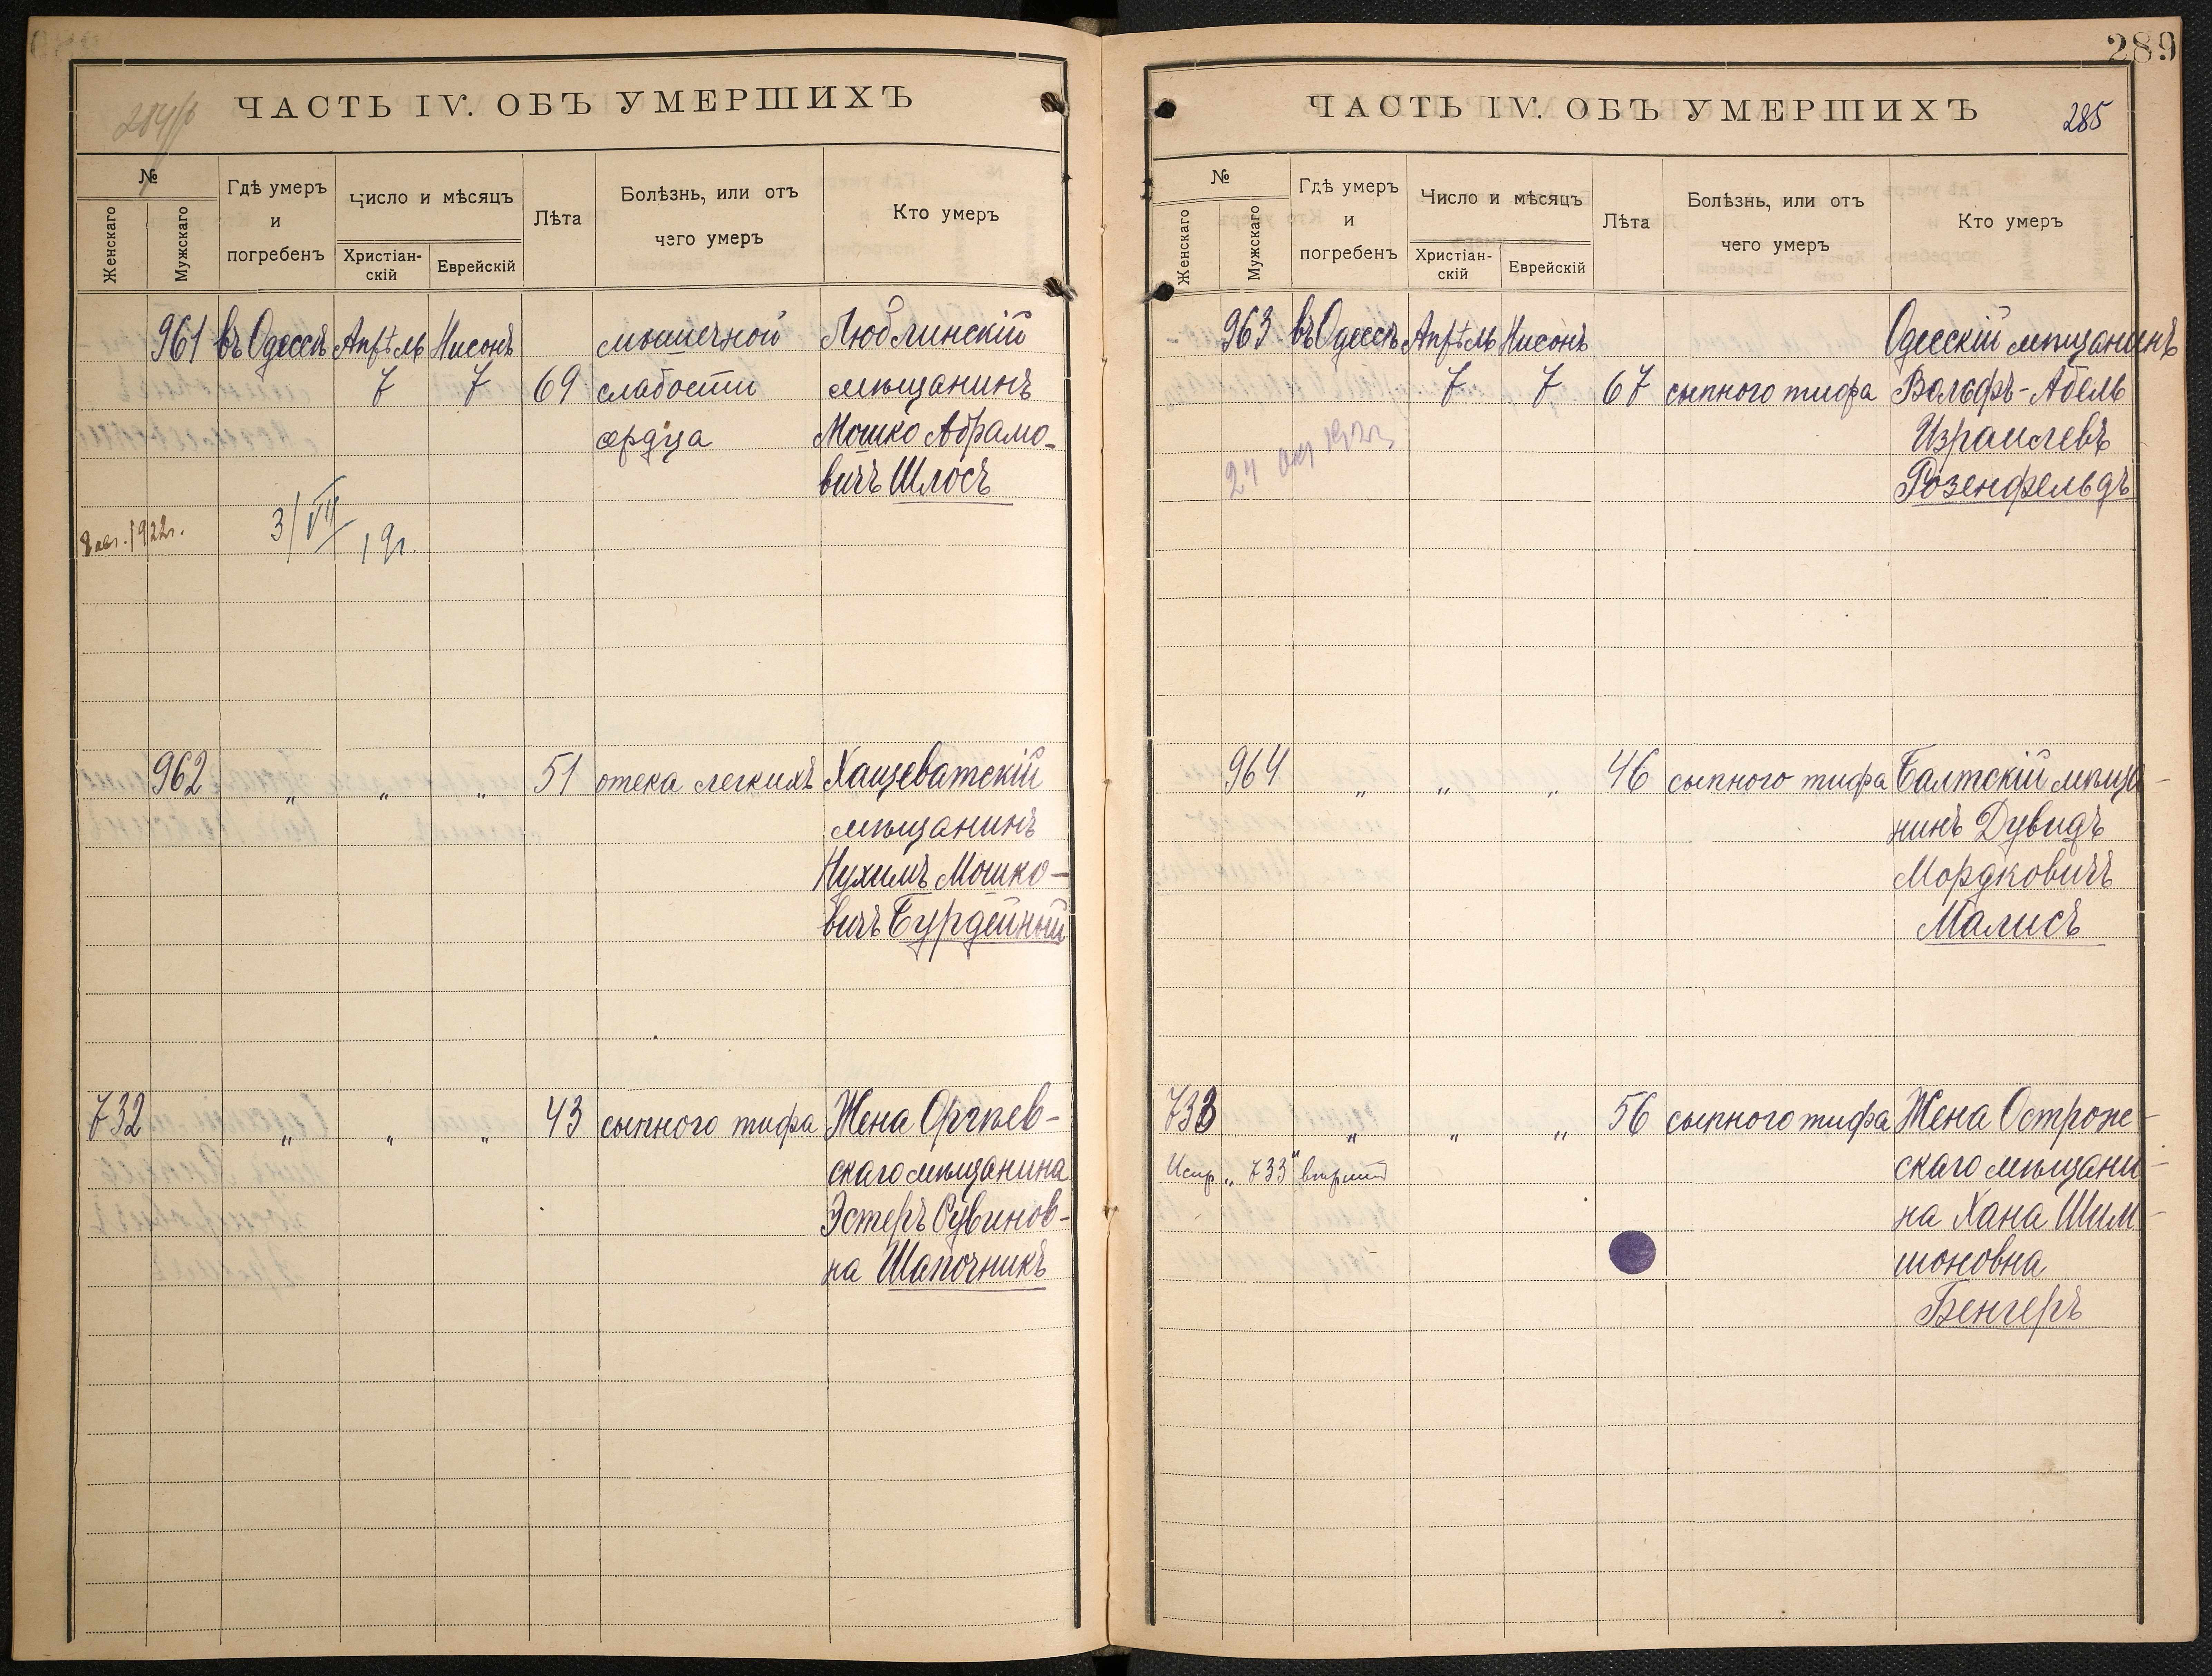 ЧАСТЬ IV. ОБЪ УМЕРШИХЪ
№
Женскаго
Мужскаго
Гдѣ умеръ
и
погребенъ
Число и мѣсяцъ
Христіан-
скій
Еврейскій
Лѣта
Болѣзнь, или отъ
чего умеръ
Кто умеръ
961 въ Одессѣ Апрѣль Нисонъ мышечной Люблинскій
7 7 69 слабости мѣщанинъ
сердца Мошко Абрамо-
вичъ Шлосъ
3/VII 19г.
8 авг. 1922г.
962 " " " 51 отека легкихъ Хащеватскій
мѣщанинъ
Нухимъ Мошко-
вичъ Бурдейный
732 " " " 43 сыпного тифа Жена Оргѣев-
скаго мѣщанина
Эстеръ Рувинов-
на Шапочникъ
289
ЧАСТЬ IV. ОБЪ УМЕРШИХЪ
285
№
Женскаго
Мужскаго
Гдѣ умеръ
и
погребенъ
Число и мѣсяцъ
Христіан-
скій
Еврейскій
Лѣта
Болѣзнь, или отъ
чего умеръ
Кто умеръ
963 въ Одессѣ Апрѣль Нисонъ Одесскій мѣщанинъ
7 7 67 сыпного тифа Вольфъ-Абель
Израилевъ
Розенфельдъ
24 1923
964 " " " 46 сыпного тифа Балтскій мѣща-
нинъ Дувидъ
Мордковичъ
Малисъ
733 " " " 56 сыпного тифа Жена Острож-
скаго мѣщани-
на Хана Шим-
шоновна
Бенгеръ
Испр. „733"